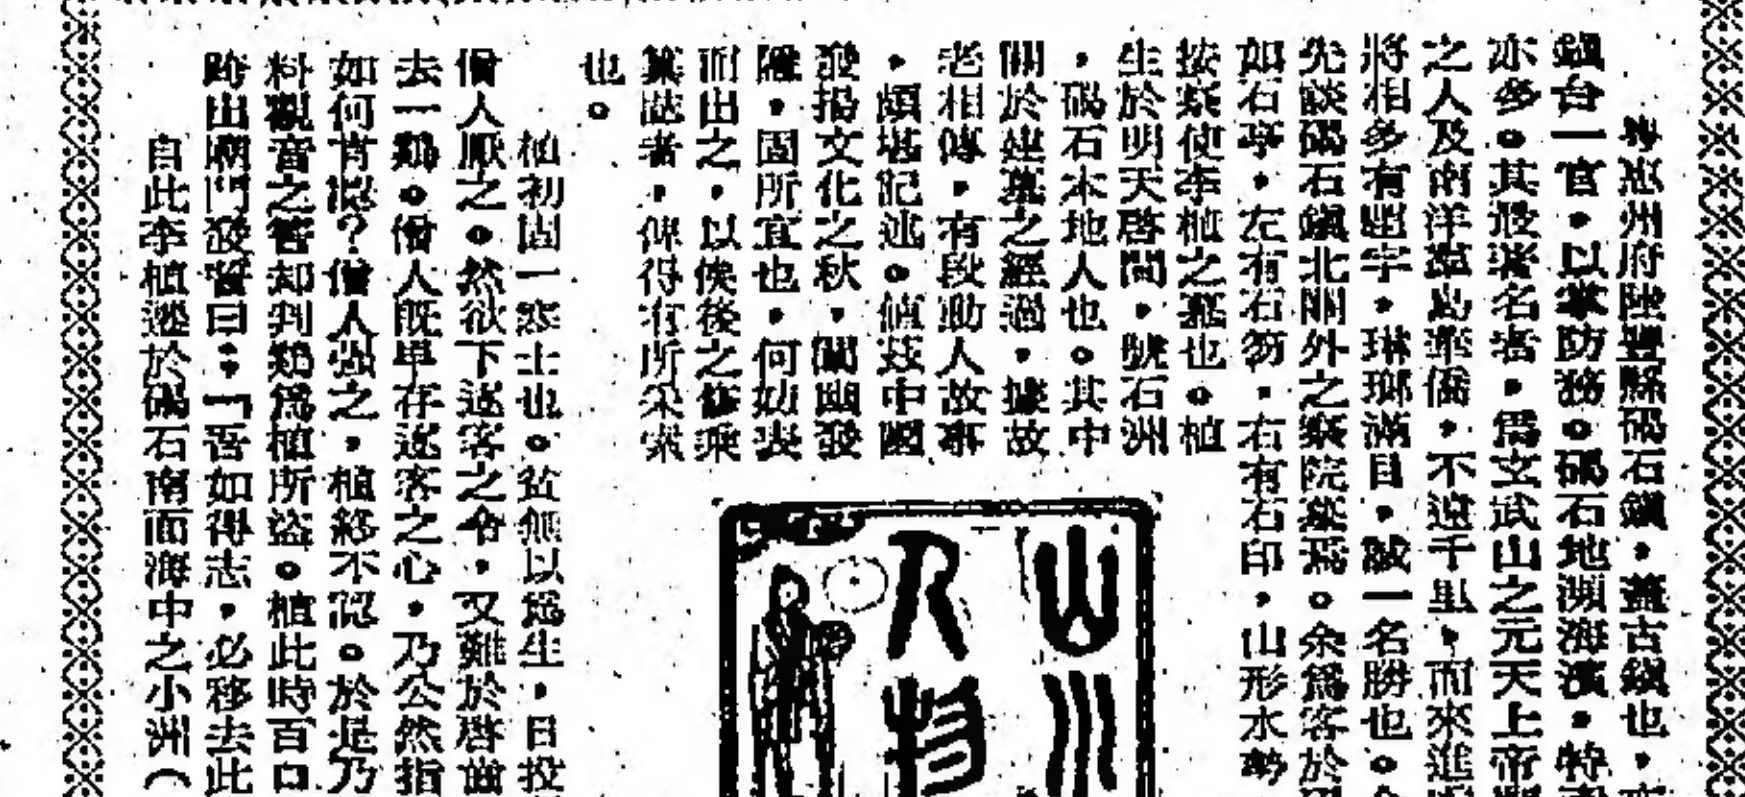 粵惠州府陸豐縣碣石鎭，蓋古鎭也，
鎭台一官，以掌防務。碣石地瀕海濱，特
亦多。其最著名者，爲玄武山之元天上帝
之人及南洋羣島華僑，不遠千里，而來進
將相多有題字，琳瑯滿目，誠一名勝也。
先談碣石鎭北關外之察院墓焉。余爲客於
如石亭，左有石笏，右有石印，山形水勢
按察使李植之墓也。植
生於明天啓間，號石洲
，碣石本地人也。其中
關於建墓之經過，據故
老相傳，有段動人故事
，頗堪記述。値茲中國
發揚文化之秋，闡幽發
隱，固所宜也，何妨表
而出之，以俟後之修乘
纂誌者，俾得有所采索
也。
植初固一寒士也。貧無以爲生，日投
僧人厭之。然欲下逐客之令，又難於啓齒
去一鷄。僧人旣早存逐客之心，乃公然指
如何肯認？僧人強之，植終不認。於是乃
料觀音之筶却判鷄爲植所盜。植此時百口
跨出廟門發誓曰：「吾如得志，必移去此
自此李植遂於碣石南面海中之小洲（
山川
人物